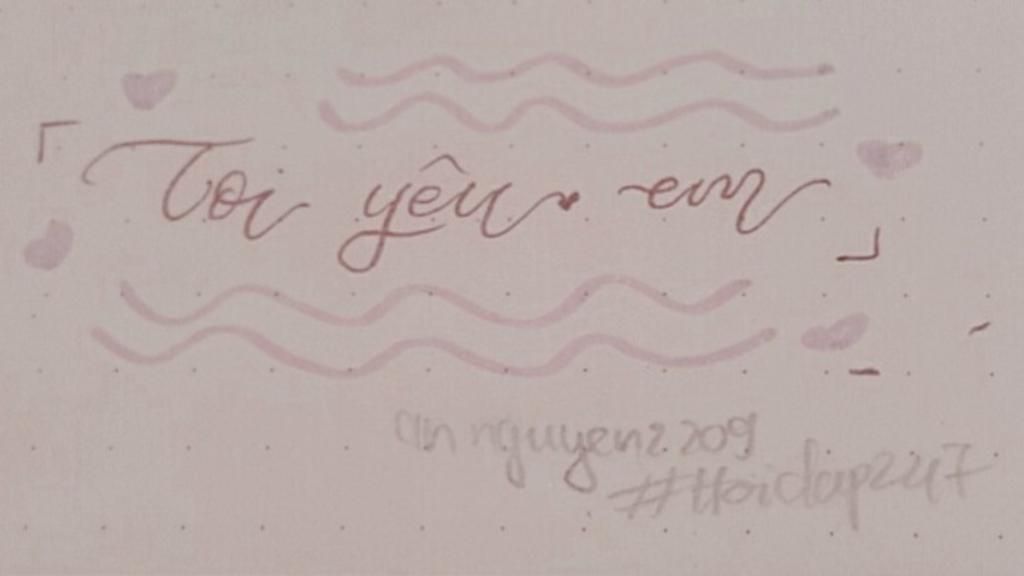 Toi yêu em
annguyen2209
#Hoidap247